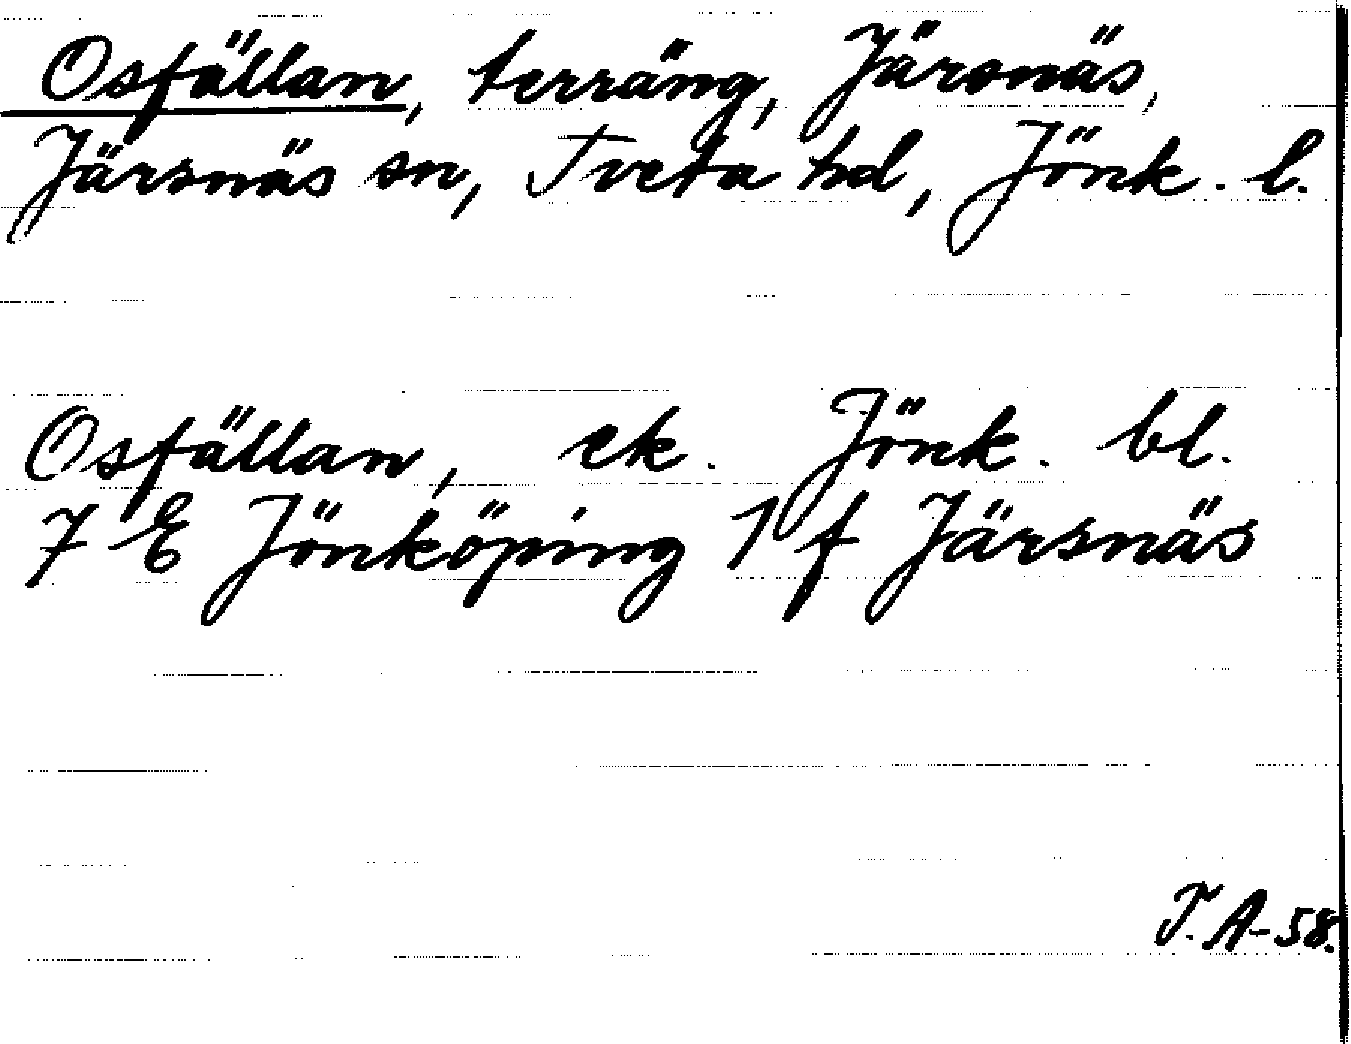 Osfällan, terräng, Järsnäs,
Järsnäs sn, Tveta hd, Jönk. l.
Osfällan, ek. Jönk. bl.
7 E Jönköping 1 f Järsnäs
T. A-58.